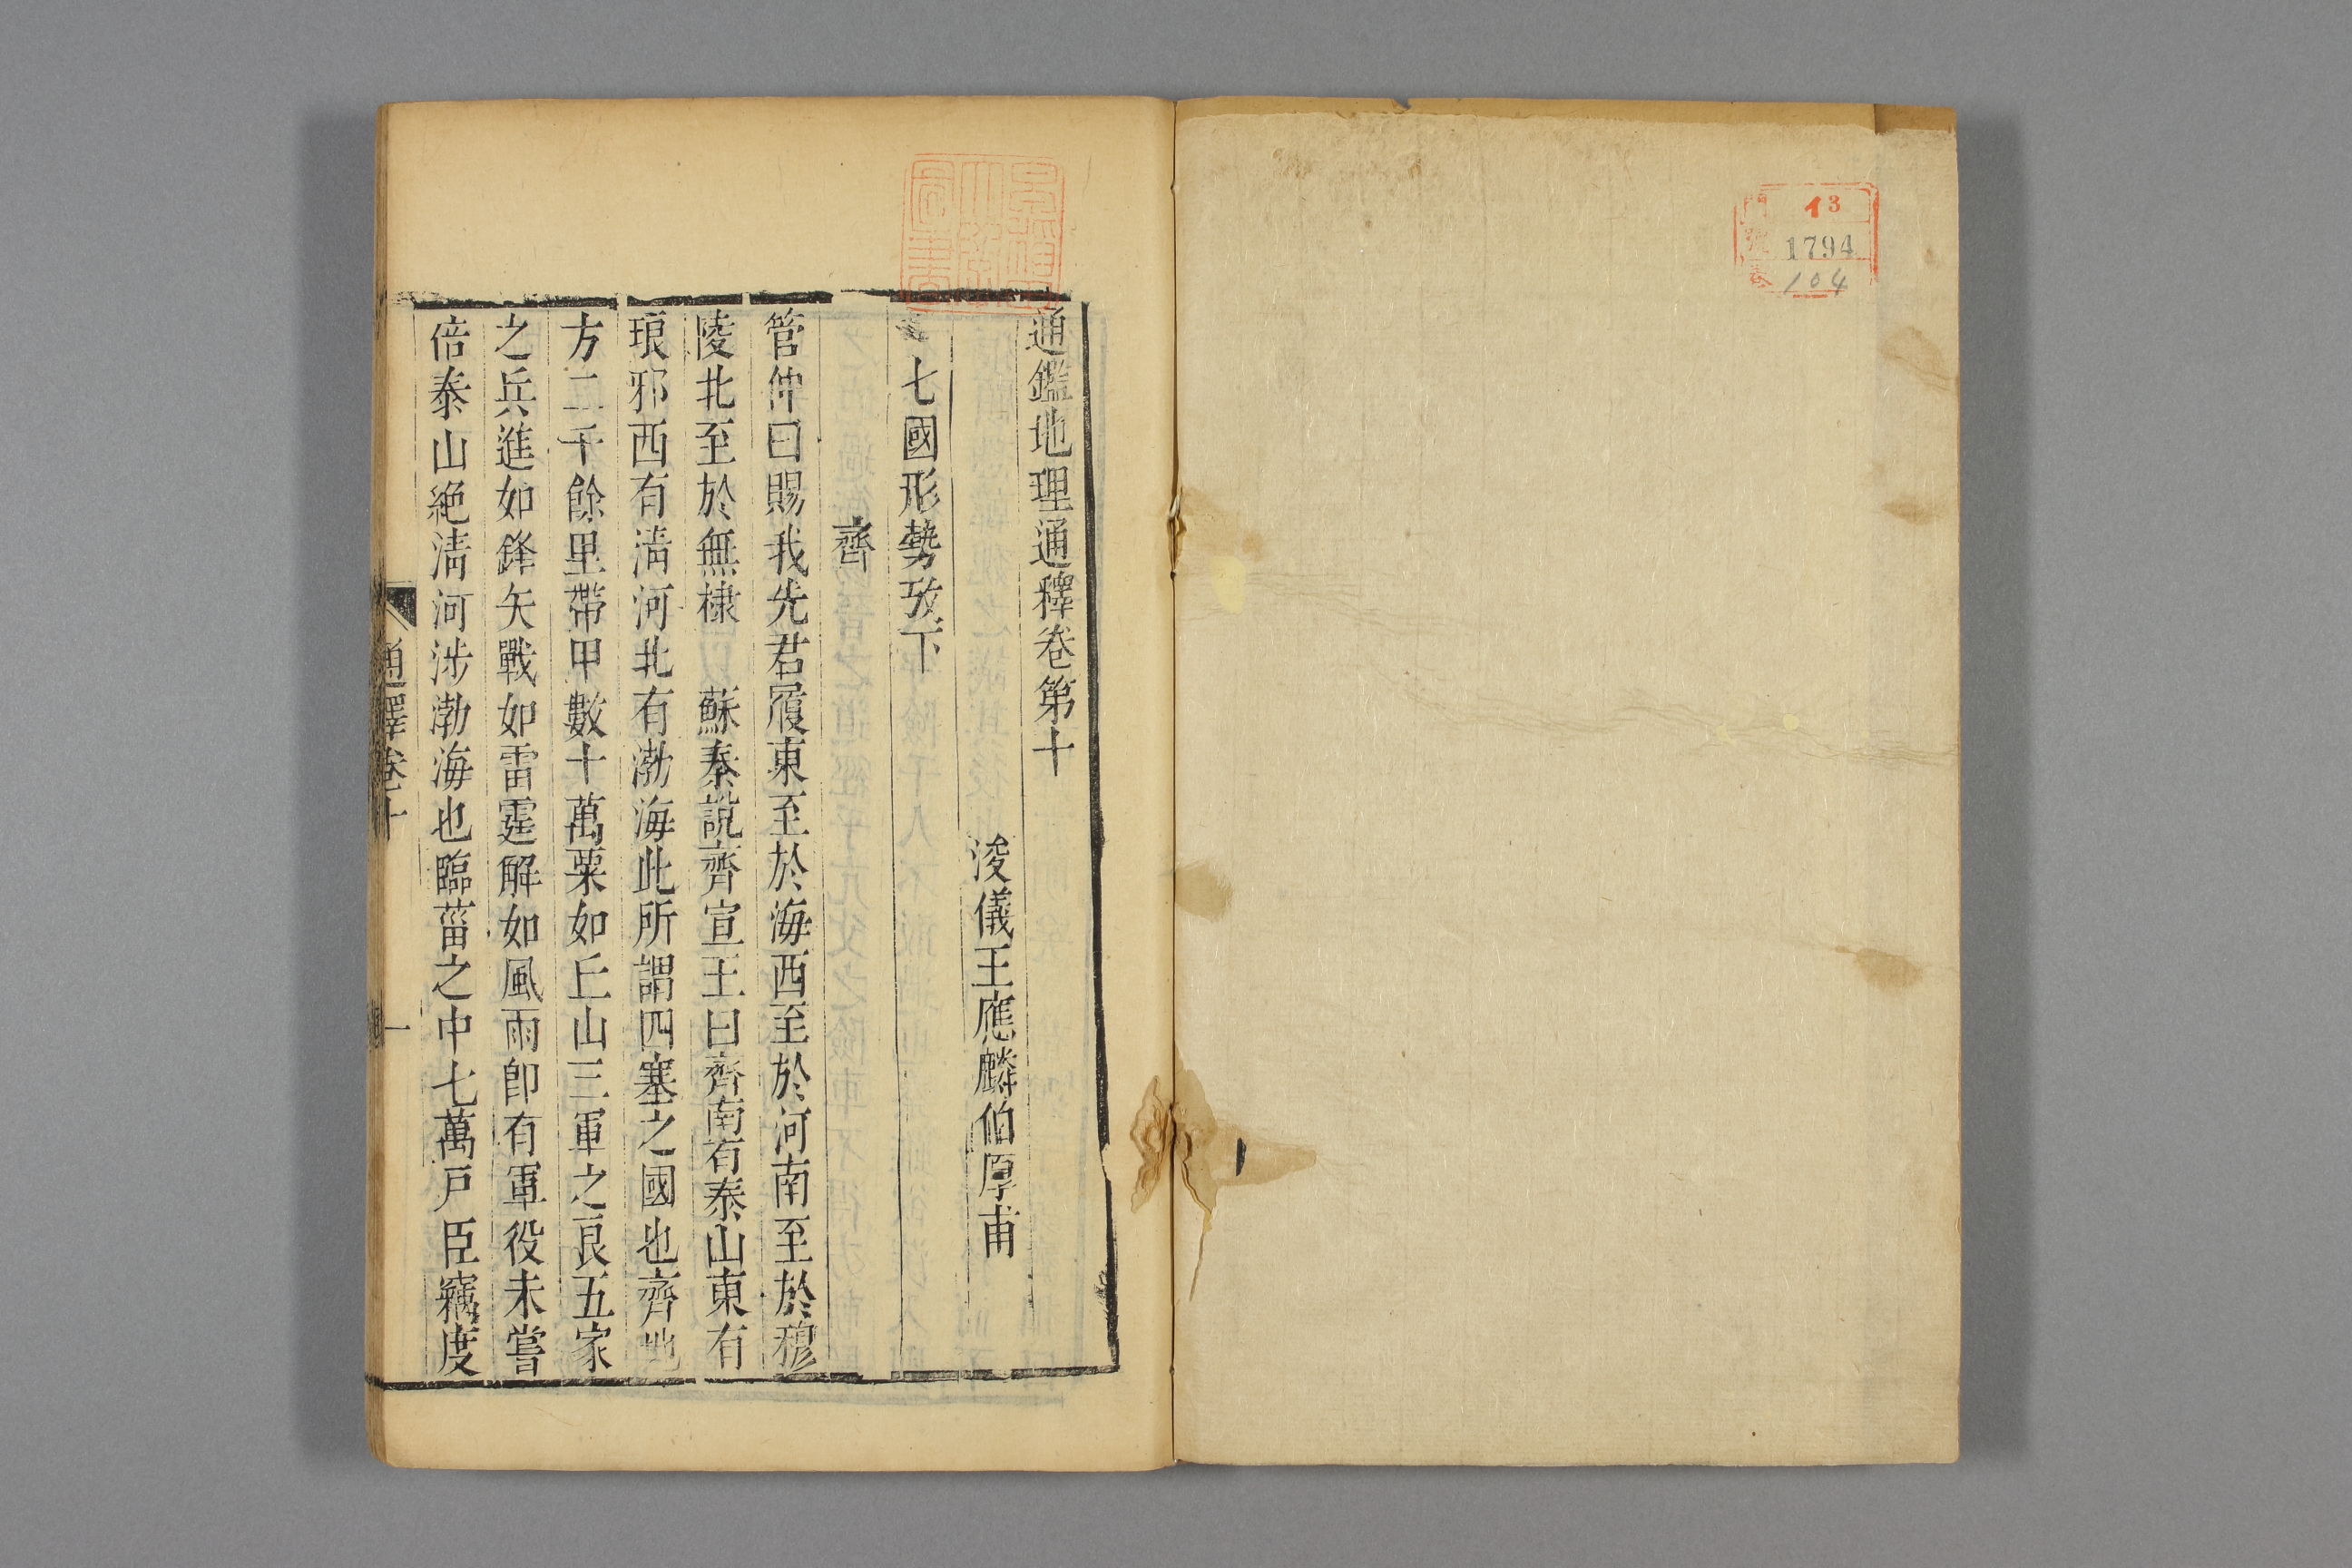 13
1794
104
通鑑地理通釋卷第十
浚儀王應麟伯厚甫
七國形勢攷下
齊
管仲曰賜我先君履東至於海西至於河南至於穆
陵北至於無棣　蘇秦說齊宣王曰齊南有泰山東有
琅邪西有淸河北有渤海此所謂四塞之國也齊地
方二千餘里帶甲數十萬粟如丘山三軍之良五家
之兵進如鋒矢戰如雷霆解如風雨卽有軍役未嘗
倍泰山絶淸河涉渤海也臨菑之中七萬戶臣竊度
通釋卷十
一